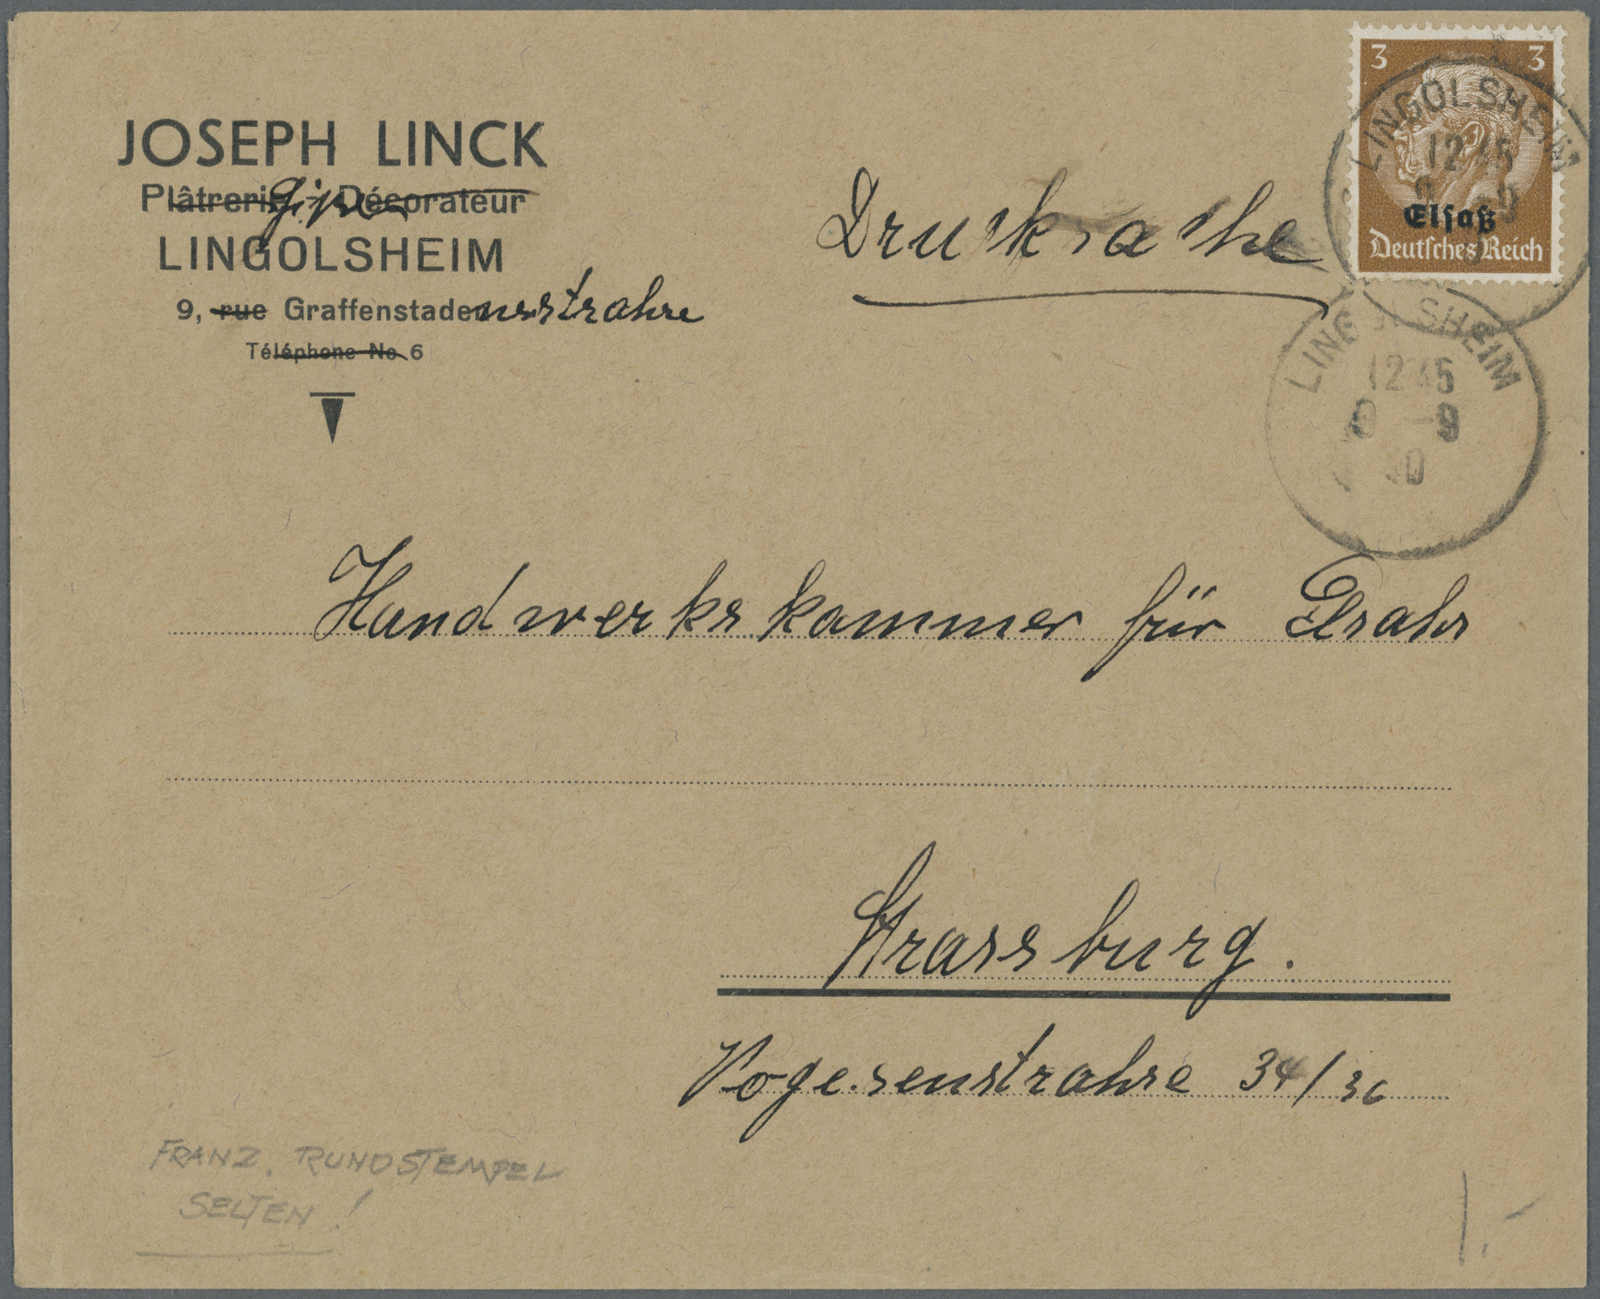 JOSEPH LINCK
Plâtrerie - Décorateur
Gipser
LINGOLSHEIM
9, rue Graffenstadenerstrahse
Téléphone No 6
Drucksache
3 3
Elsaß
Deutsches Reich
LINGOLSHEIM
12 45
9 -9
LINGOLSHEIM
12 45
9 -9
40
Handwerkskammer für Elsahs
Strassburg.
Vogesenstrahse 34/36
FRANZ. RUNDSTEMPEL
SELTEN!
1.-